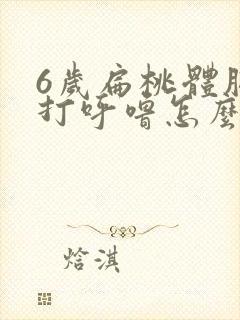 6歲扁桃體
打呼嚕怎麼
焓淇